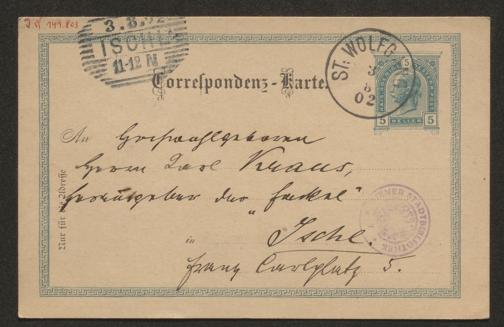 J.N. 149.803
3.8.02
ISCHL
11-12 N
Correspondenz-Karte
ST. WOLFG
3
8
02
5 5
5 HELLER 5
An Hochwohlgeboren
Herrn Karl Kraus,
Herausgeber der Fackel"
Nur für die Adresse
WIENER STADTBIBLIOTHEK
in Ischl.
Franz Carlplatz 5.